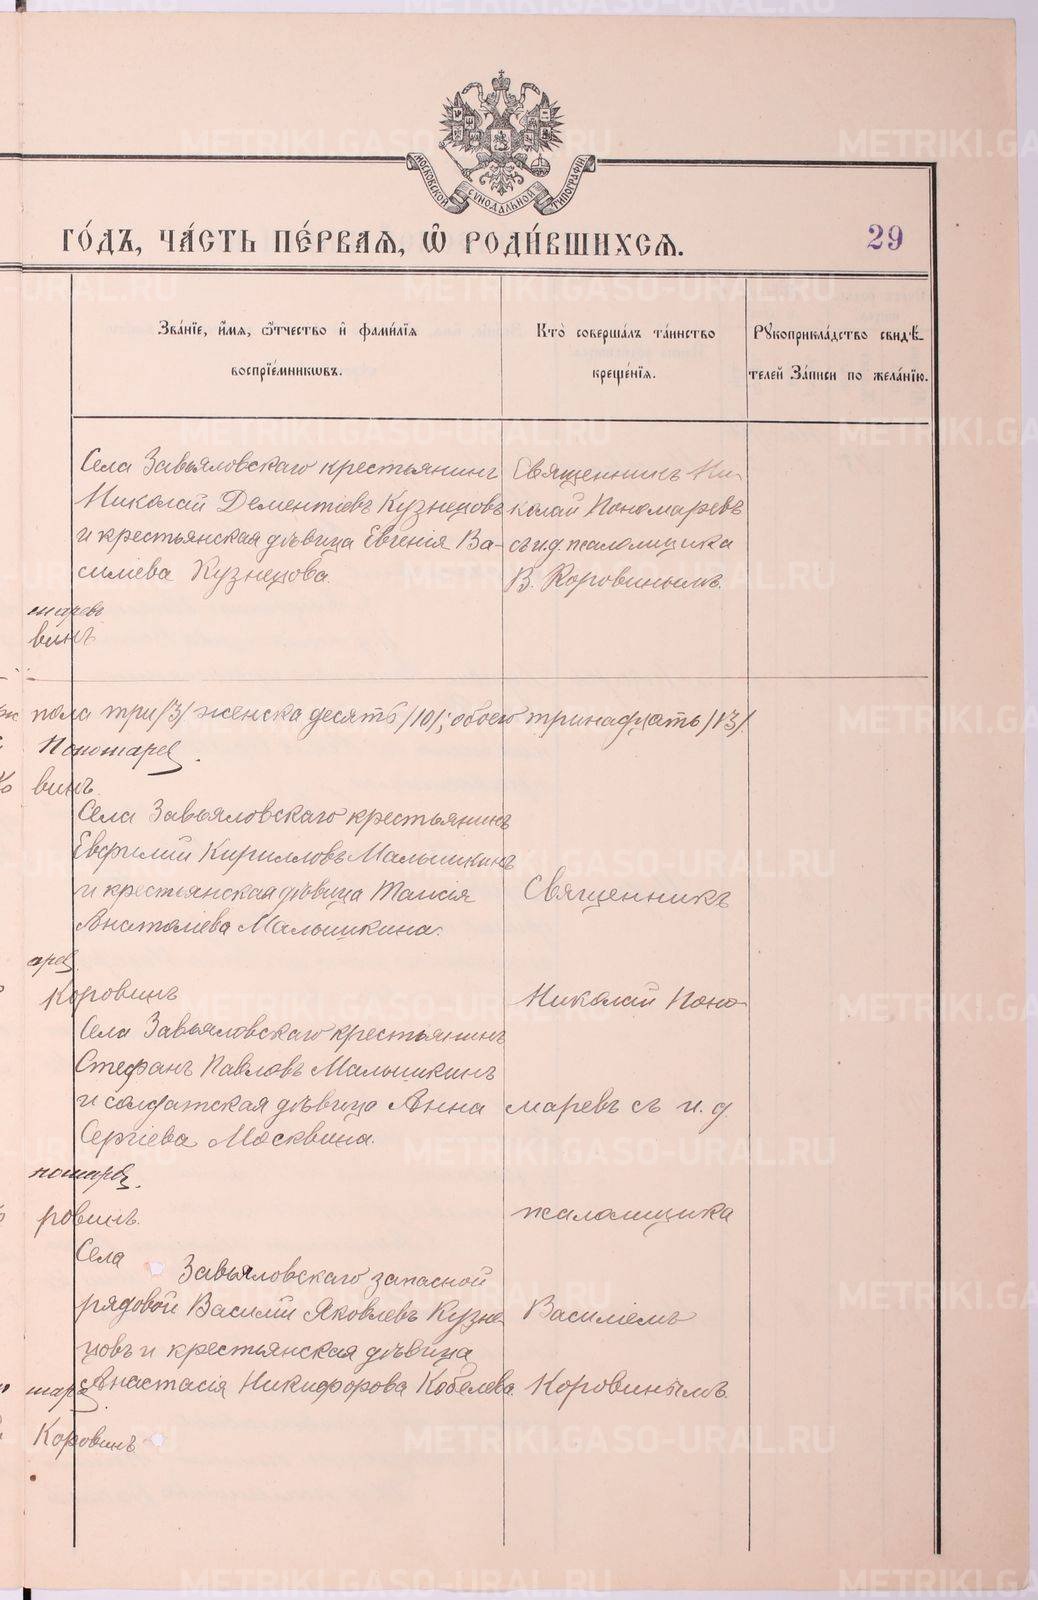 МОСКОВСКОЙ СУНОДАЛЬНОЙ ТИПОГРАФІИ
ГО́ДЪ, ЧА́СТЬ ПЕ́РВАѦ, Ѽ РОДИ́ВШИХСѦ.
29
Зва́нїе, и҆́мѧ, ѻ҆́тчество и҆ фами́лїѧ
воспрїе́мникѡвъ.
Кто̀ соверша́лъ та́инство
креще́нїѧ.
Рꙋкоприкла́дство свидѣ́-
телей За́писи по жела́нїю.
Села Завьяловскаго крестьянинъ
Николай Дементіевъ Кузнецовъ
и крестьянская дѣвица Евгенія Ва-
силіева Кузнецова.
Священникъ Ни-
колай Пономаревъ
съ и.д. псаломщика
В. Коровинымъ.
маревъ
винъ
пола три /3/ женска десять /10/; обоего тринадцать /13/.
Пономарев.
винъ.
Села Завьяловскаго крестьянинъ
Евфимій Кирилловъ Малышкинъ
и крестьянская дѣвица Таисія
Анатоліева Малышкина.
Священникъ
арев
Коровинъ
Николай Поно-
Села Завьяловскаго крестьянинъ
Стефанъ Павловъ Малышкинъ
и солдатская дѣвица Анна
Сергіева Москвина.
маревъ съ и. д.
номарев.
ровинъ.
псаломщика
Села Завьяловскаго запасной
рядовой Василій Яковлевъ Кузне-
цовъ и крестьянская дѣвица
Анастасія Никифорова Кобелева.
Василіемъ
Коровинымъ.
мар
Коровинъ
METRIKI.GASO-URAL.RU